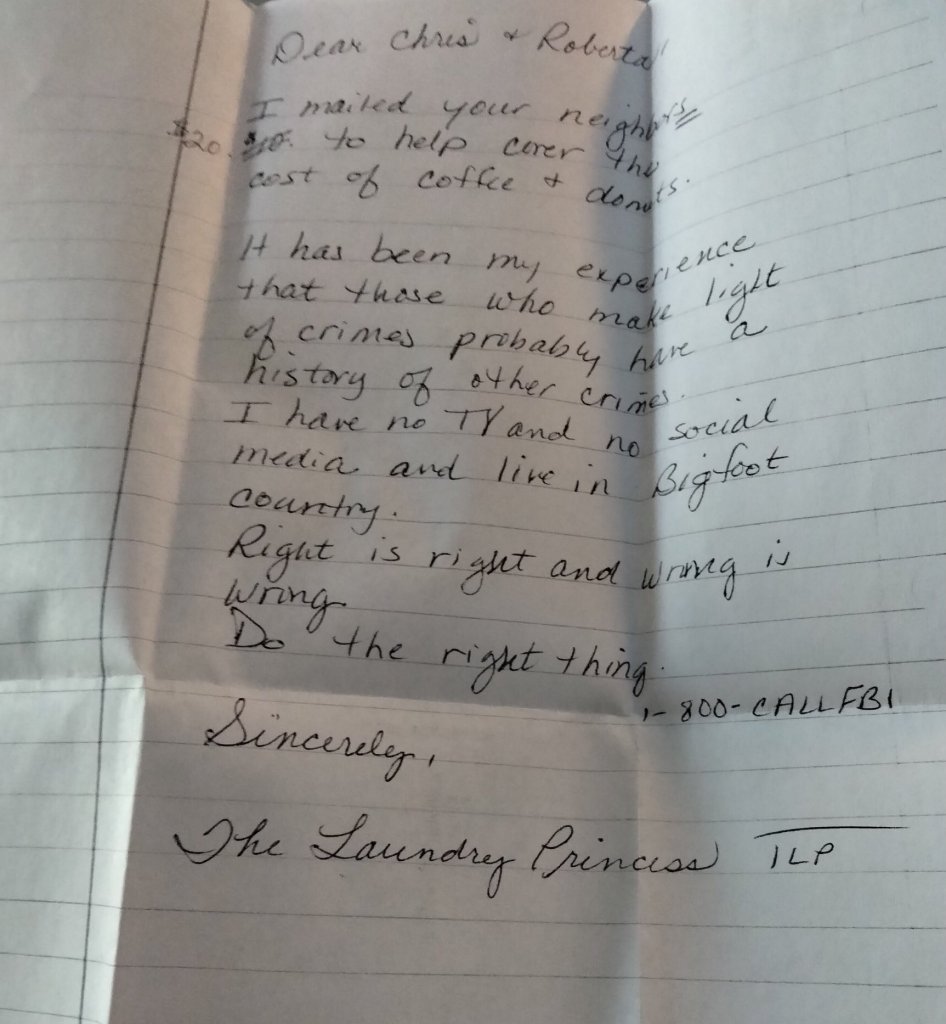 Dear Chris & Roberta
I mailed your neighbors
$20. to help cover the
cost of coffee & donuts.
It has been my experience
that those who make light
of crimes probably have a
history of other crimes.
I have no TV and no social
media and live in Bigfoot
country.
Right is right and wrong is
wrong.
Do the right thing.
1-800-CALLFBI
Sincerely,
The Laundry Princess TLP